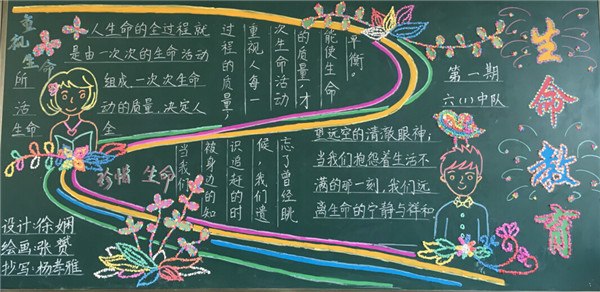 生命教育
第一期
六(1)中队
重视生命
人生命的全过程就
是由一次次的生命活动
所 组成,一次次生命
活 动的质量,决定人
生命 全
过程的质量,
重视人每一
次生命活动
的质量,才
能使生命
平衡。
珍惜 生命
当我们
被身边的知
识追赶的时
候,我们遗
忘了曾经眺
望远空的清澈眼神;
当我们抱怨着生活不
满的那一刻,我们远
离生命的宁静与祥和
设计:徐娴
绘画:张赟
抄写:杨孝雅